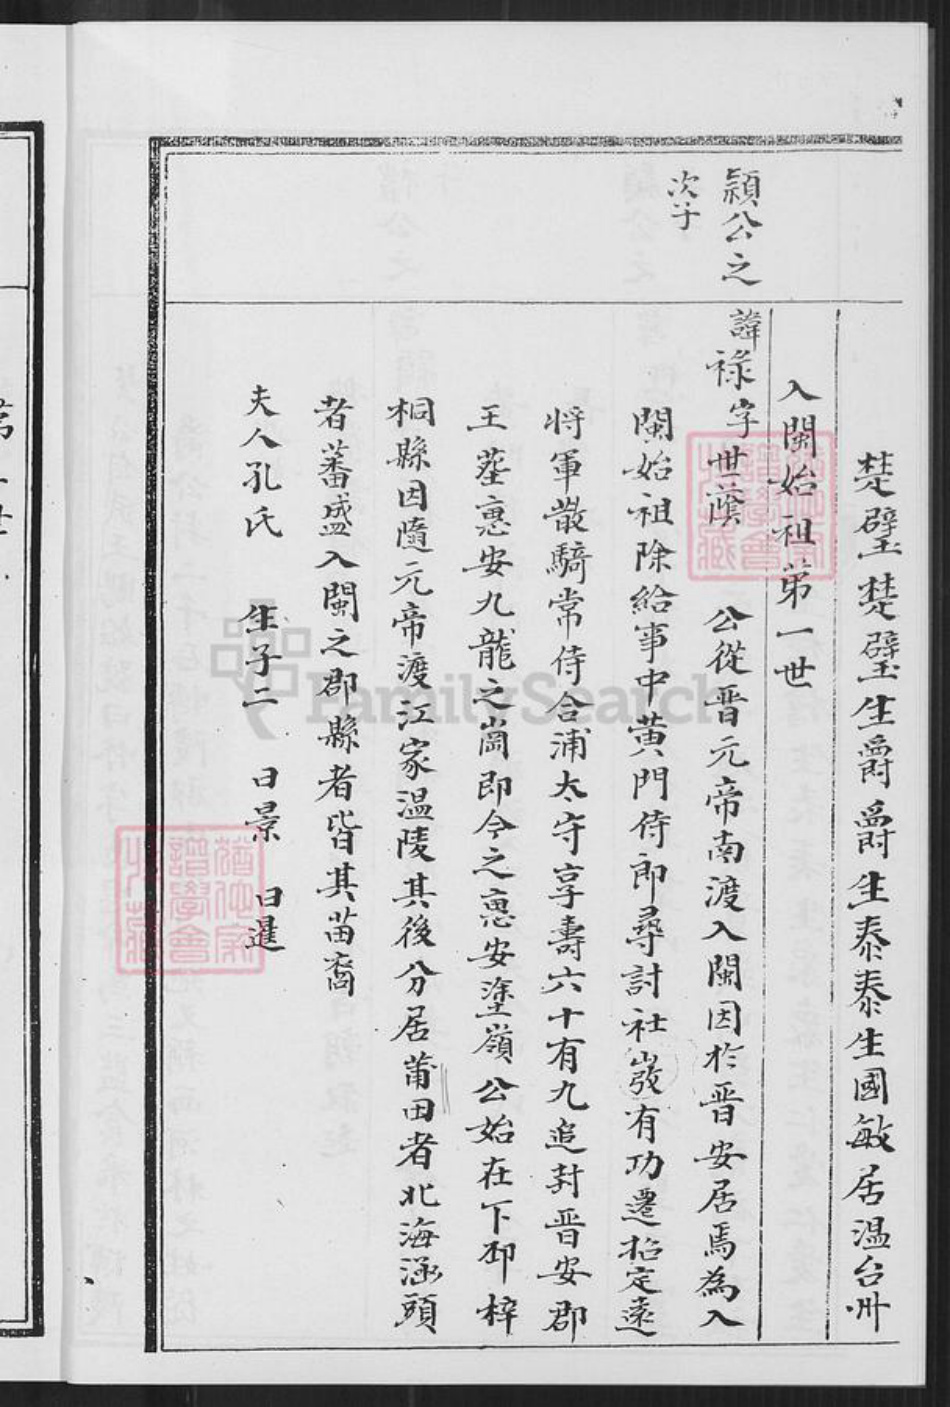 楚璧楚璧生爵爵生泰泰生國敏居温台州
入閩始祖第一世
穎公之
次子
諱祿字世蔭 公從晋元帝南渡入閩因於晋安居焉為入
閩始祖除給事中黄門侍郎尋討社弢有功遷招定遠
將軍散騎常侍合浦太守享壽六十有九追封晋安郡
王塟惠安九龍之崗即今之惠安塗嶺公始在下邳梓
桐縣因隨元帝渡江家温陵其後分居莆田者北海涵頭
者蕃盛入閩之郡縣者皆其苗裔
夫人孔氏 生子二 曰景 曰暹
FamilySearch